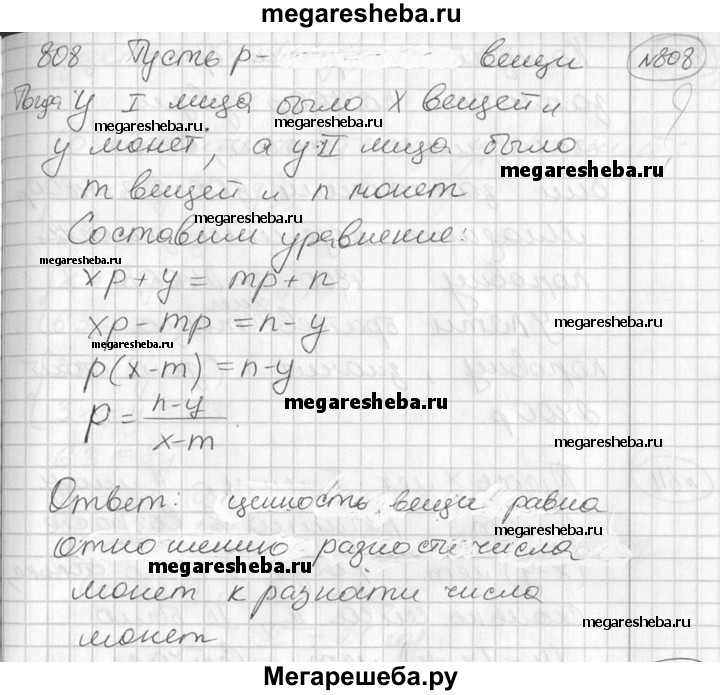 megaresheba.ru
808 Пусть р- вещи №808
Тогда У I лица было X вещей и
megaresheba.ru megaresheba.ru
у монет, а у II лица было
megaresheba.ru
m вещей и n монет
megaresheba.ru
Составим уравнение:
megaresheba.ru
xp+y=mp+n
xp-mp=n-y
megaresheba.ru
p(x-m)=n-y
megaresheba.ru
p=
n-y
x-m
megaresheba.ru
Ответ: ценность вещи равна
megaresheba.ru
отношению разности числа
megaresheba.ru
монет к разности числа
megaresheba.ru
монет
Мегарешеба.ру